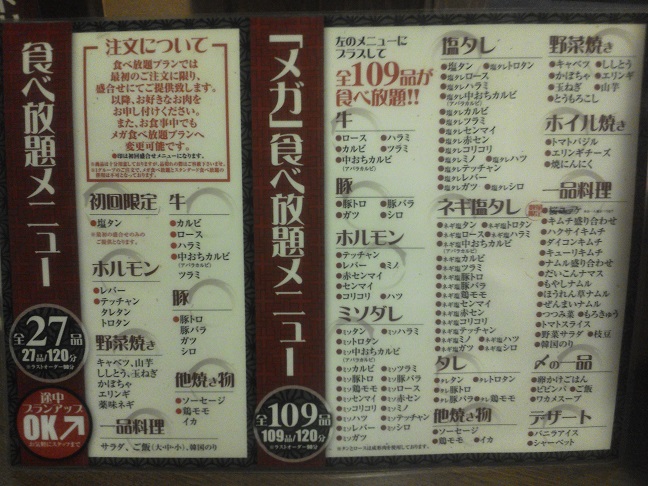 食べ放題メニュー
全27品
27品/120分
※ラストオーダー90分
途中
プランアップ
OK
注文について
食べ放題プランでは
最初のご注文に限り、
盛合せにてご提供致します。
以降、お好きなお肉を
お申し付けください。
また、お食事中でも
メガ食べ放題プランへ
変更可能です。
●印は初回盛合せメニューになります。
初回限定
●塩タン
ホルモン
●レバー
●テッチャン
タレタン
トロタン
野菜焼き
キャベツ、山芋
ししとう、玉ねぎ
かぼちゃ
エリンギ
薬味ネギ
一品料理
サラダ、ご飯(大・中・小)、韓国のり
牛
●カルビ
●ロース
●ハラミ
●中おちカルビ
(アバラカルビ)
ツラミ
豚
●豚トロ
豚バラ
ガツ
シロ
他焼き物
●ソーセージ
●鶏モモ
イカ
「メガ」食べ放題メニュー
全109品
109品/120分
※ラストオーダー90分
左のメニューに
プラスして
全109品が
食べ放題!!
牛
●ロース ●ハラミ
●カルビ ●ツラミ
●中おちカルビ
(アバラカルビ)
豚
●豚トロ ●豚バラ
●ガツ ●シロ
ホルモン
●テッチャン
●レバー ●ミノ
●赤センマイ
●センマイ
●コリコリ ●ハツ
ミソダレ
●ミソタン ●ミソハラミ
●ミソトロタン
●ミソ中おちカルビ
(アバラカルビ)
●ミソカルビ ●ミソツラミ
●ミソロース ●ミソ豚トロ
●ミソ鶏モモ ●ミソ豚バラ
●ミソセンマイ ●ミソ赤セン
●ミソコリコリ ●ミソミノ
●ミソハツ ●ミソテッチャン
●ミソレバー ●ミソシロ
●ミソガツ
塩タレ
●塩タン ●塩タレトロタン
●塩タレロース
●塩タレハラミ
●塩タレ中おちカルビ
(アバラカルビ)
●塩タレカルビ
●塩タレツラミ
●塩タレセンマイ
●塩タレ赤セン
●塩タレコリコリ
●塩タレミノ ●塩タレハツ
●塩タレテッチャン
●塩タレレバー
●塩タレガツ ●塩タレシロ
ネギ塩タレ
●ネギ塩タン ●ネギ塩トロタン
●ネギ塩ロース ●ネギ塩ハラミ
●ネギ塩中おちカルビ
(アバラカルビ)
●ネギ塩カルビ
●ネギ塩ツラミ
●ネギ塩豚トロ
●ネギ塩豚バラ
●ネギ塩鶏モモ
●ネギ塩センマイ
●ネギ塩赤セン
●ネギ塩コリコリ
●ネギ塩テッチャン
●ネギ塩ミノ ●ネギ塩ハツ
●ネギ塩ガツ ●ネギ塩シロ
タレ
●タレタン ●タレトロタン
●タレ豚トロ
●タレ豚バラ ●タレ鶏モモ
他焼き物
●ソーセージ
●鶏モモ ●イカ
野菜焼き
●キャベツ ●ししとう
●かぼちゃ ●エリンギ
●玉ねぎ ●山芋
●とうもろこし
ホイル焼き
●トマトバジル
●エリンギチーズ
●焼にんにく
一品料理
●キムチ盛り合わせ
●ハクサイキムチ
●ダイコンキムチ
●キューリキムチ
●ナムル盛り合わせ
●だいこんナマス
●もやしナムル
●ほうれん草ナムル
●ぜんまいナムル
●つつみ菜 ●もろきゅう
●トマトスライス
●野菜サラダ ●枝豆
●韓国のり
〆の一品
●卵かけごはん
●ビビンバ ●ご飯
●ワカメスープ
デザート
●バニラアイス
●シャーベット